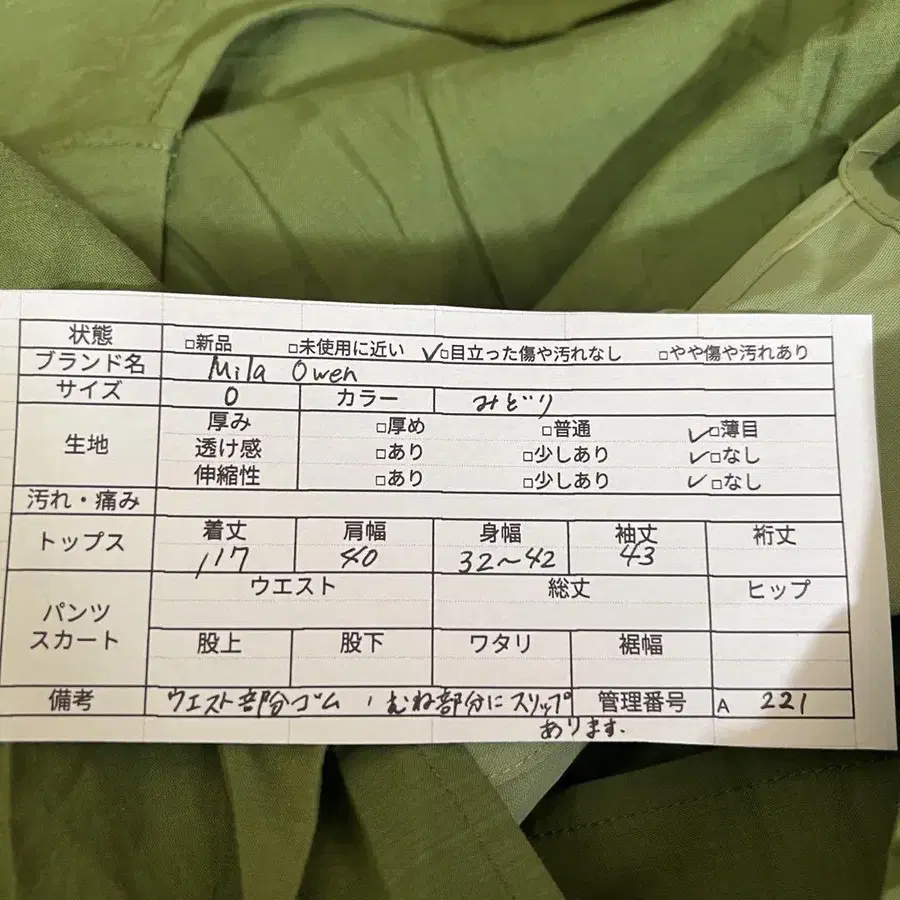 状態 □新品 □未使用に近い ✓□目立った傷や汚れなし □やや傷や汚れあり
ブランド名 Mila Owen
サイズ 0 カラー みどり
生地 厚み □厚め □普通 ✓□薄目
透け感 □あり □少しあり ✓□なし
伸縮性 □あり □少しあり ✓□なし
汚れ・痛み
トップス 着丈 肩幅 身幅 袖丈 裄丈
117 40 32〜42 43
パンツ スカート ウエスト 総丈 ヒップ
股上 股下 ワタリ 裾幅
備考 ウエスト部分ゴム、むね部分にスリップ 管理番号 A 221
あります.